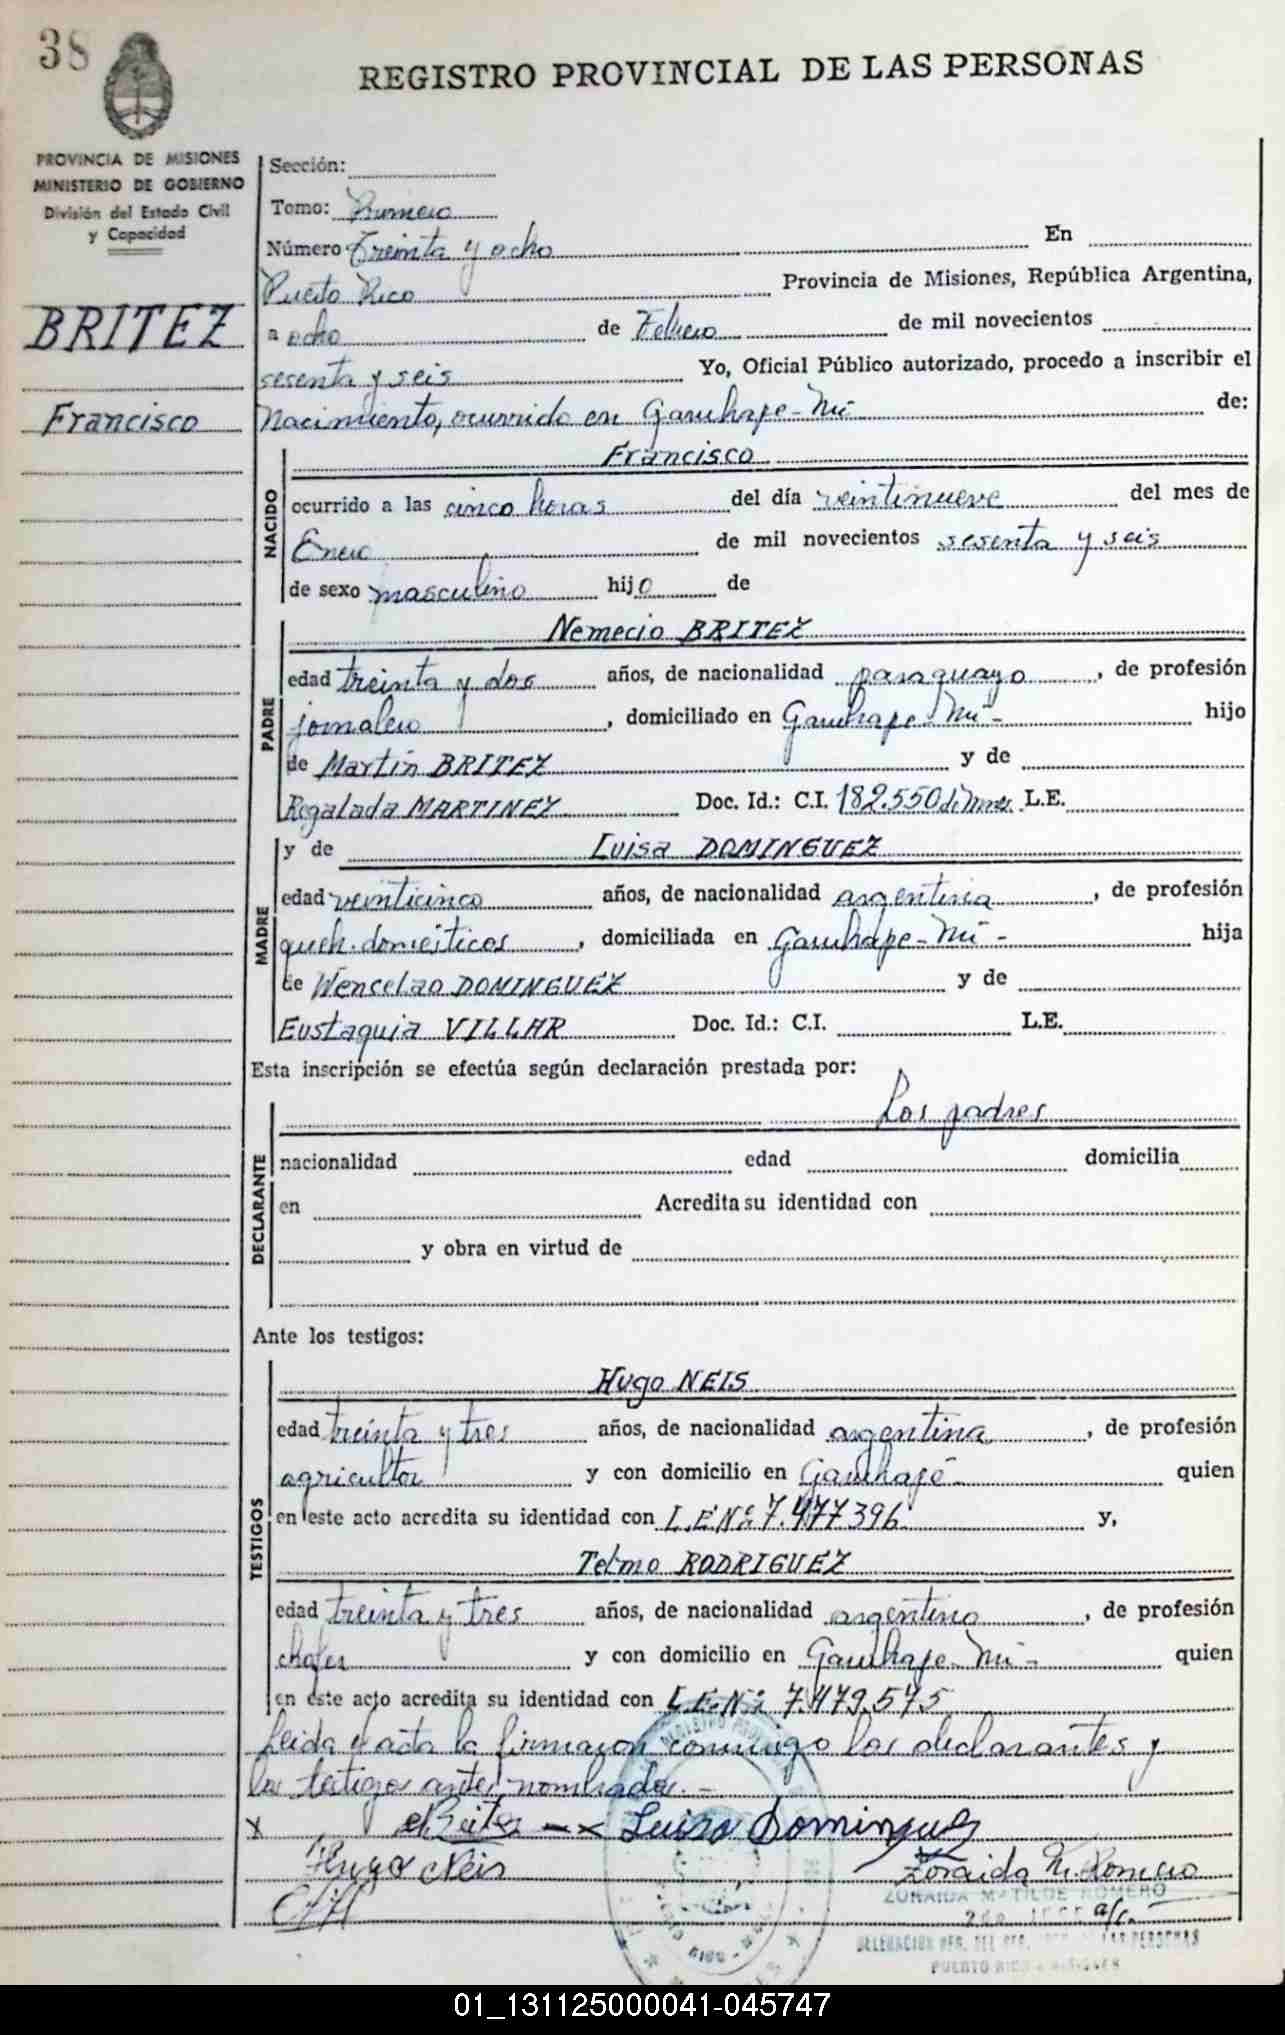 38
REGISTRO PROVINCIAL DE LAS PERSONAS
PROVINCIA DE MISIONES
MINISTERIO DE GOBIERNO
División del Estado Civil
y Capacidad
BRITEZ
Francisco
Sección:
Tomo: Primero
Número Treinta y ocho En
Puerto Rico Provincia de Misiones, República Argentina,
a ocho de Febrero de mil novecientos
sesenta y seis Yo, Oficial Público autorizado, procedo a inscribir el
Nacimiento, ocurrido en Garuhape-Mí de:
NACIDO
Francisco
ocurrido a las cinco horas del día veintinueve del mes de
Enero de mil novecientos sesenta y seis
de sexo masculino hijo de
PADRE
Nemecio BRITEZ
edad treinta y dos años, de nacionalidad paraguayo, de profesión
jornalero, domiciliado en Garuhape-Mí- hijo
de Martín BRITEZ y de
Regalada MARTINEZ Doc. Id.: C.I. 182.550 L.E.
MADRE
y de Luisa DOMINGUEZ
edad veinticinco años, de nacionalidad argentina, de profesión
queh. domésticos, domiciliada en Garuhape-Mí- hija
de Wenselao DOMINGUEZ y de
Eustaquia VILLAR Doc. Id.: C.I. L.E.
Esta inscripción se efectúa según declaración prestada por:
DECLARANTE
Los padres
nacionalidad edad domicilia
en Acredita su identidad con
y obra en virtud de
Ante los testigos:
TESTIGOS
Hugo NEIS
edad treinta y tres años, de nacionalidad argentina, de profesión
agricultor y con domicilio en Garuhapé- quien
en este acto acredita su identidad con L.E.Nº 7.477396 y,
Telmo RODRIGUEZ
edad treinta y tres años, de nacionalidad argentino, de profesión
chofer y con domicilio en Garuhape-Mí- quien
en este acto acredita su identidad con L.E.Nº 7.479.575
Leida el acta la firmaron conmigo los declarantes y
los testigos antes nombrados.-
x x Luisa Dominguez
Hugo Neis Zoraida M. Romero
ZORAIDA MATILDE ROMERO
a/c.
PUERTO RICO - MISIONES
01_131125000041-045747